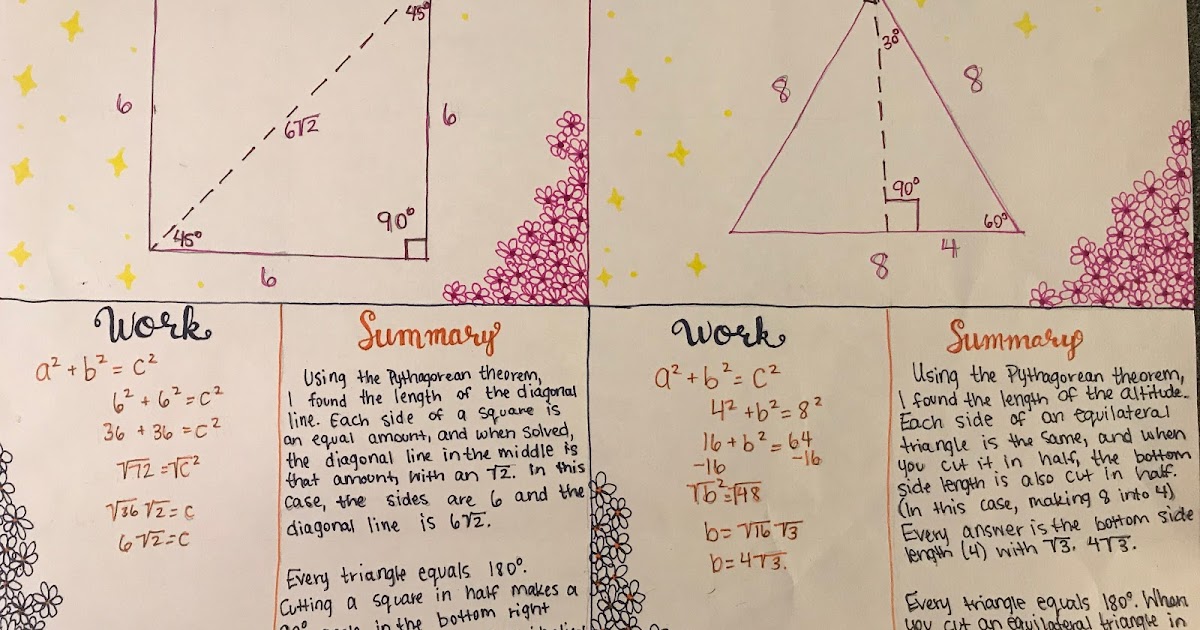 45°
6
6√2
6
45°
90°
6
30°
8
8
90°
60°
4
8
Work
a² + b² = c²
6² + 6² = c²
36 + 36 = c²
√72 = √c²
√36 √2 = c
6√2 = c
Summary
Using the Pythagorean theorem,
I found the length of the diagonal
line. Each side of a square is
an equal amount, and when solved,
the diagonal line in the middle is
that amount, with an √2. In this
case, the sides are 6 and the
diagonal line is 6√2.
Every triangle equals 180°.
Cutting a square in half makes a
90° in the bottom right
Work
a² + b² = c²
4² + b² = 8²
16 + b² = 64
-16 -16
√b² = √48
b = √16 √3
b = 4√3.
Summary
Using the Pythagorean theorem,
I found the length of the altitude.
Each side of an equilateral
triangle is the same, and when
you cut it in half, the bottom
side length is also cut in half.
(In this case, making 8 into 4)
Every answer is the bottom side
length (4) with √3. 4√3.
Every triangle equals 180°. When
you cut an equilateral triangle in